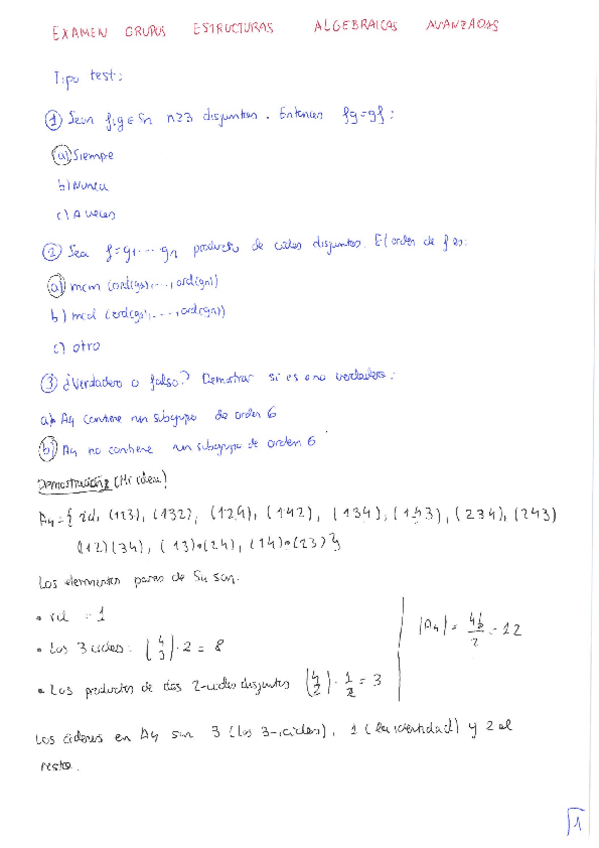 EXAMEN GRUPOS ESTRUCTURAS ALGEBRAICAS AVANZADAS
Tipo test:
① Sean f,g ∈ Sn n≥3 disjuntas. Entonces fg=gf:
a) Siempre
b) Nunca
c) A veces
② Sea f=g1,...gn producto de ciclos disjuntos. El orden de f es:
a) mcm (ord(g1),...,ord(gn))
b) mcd (ord(g1),...,ord(gn))
c) otro
③ ¿Verdadero o falso? Demostrar si es o no verdadero:
a) A4 contiene un subgrupo de orden 6
b) A4 no contiene un subgrupo de orden 6
Demostración (Mi idea)
A4={id, (123), (132), (124), (142), (134), (143), (234), (243)
(12)(34), (13)∘(24), (14)∘(23)}
Los elementos pares de S4 son:
• id = 1
• Los 3 ciclos: (4 3)·2 = 8
• Los productos de dos 2-ciclos disjuntos (4 2)·1/2 = 3
|A4| = 4!/2 = 12
Los órdenes en A4 son 3 (los 3-ciclos), 1 (la identidad) y 2 el
resto.
1